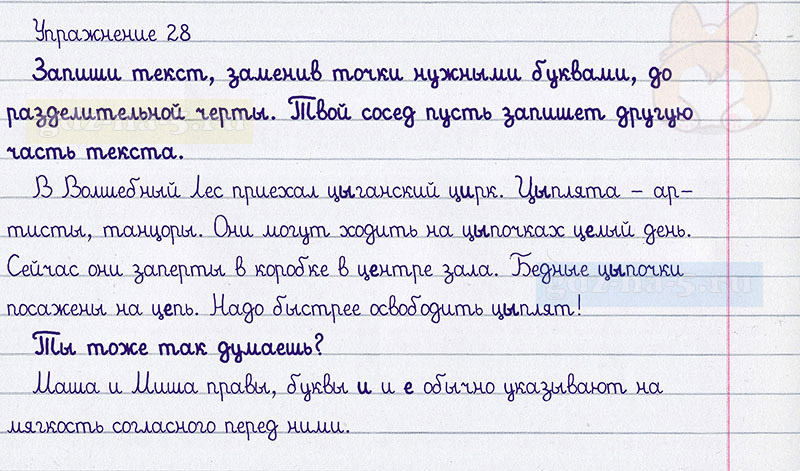 Упражнение 28
Запиши текст, заменив точки нужными буквами, до
разделительной черты. Твой сосед пусть запишет другую
часть текста.
В Волшебный Лес приехал цыганский цирк. Цыплята – ар-
тисты, танцоры. Они могут ходить на цыпочках целый день.
Сейчас они заперты в коробке в центре зала. Бедные цыпочки
посажены на цепь. Надо быстрее освободить цыплят!
Ты тоже так думаешь?
Маша и Миша правы, буквы и и е обычно указывают на
мягкость согласного перед ними.